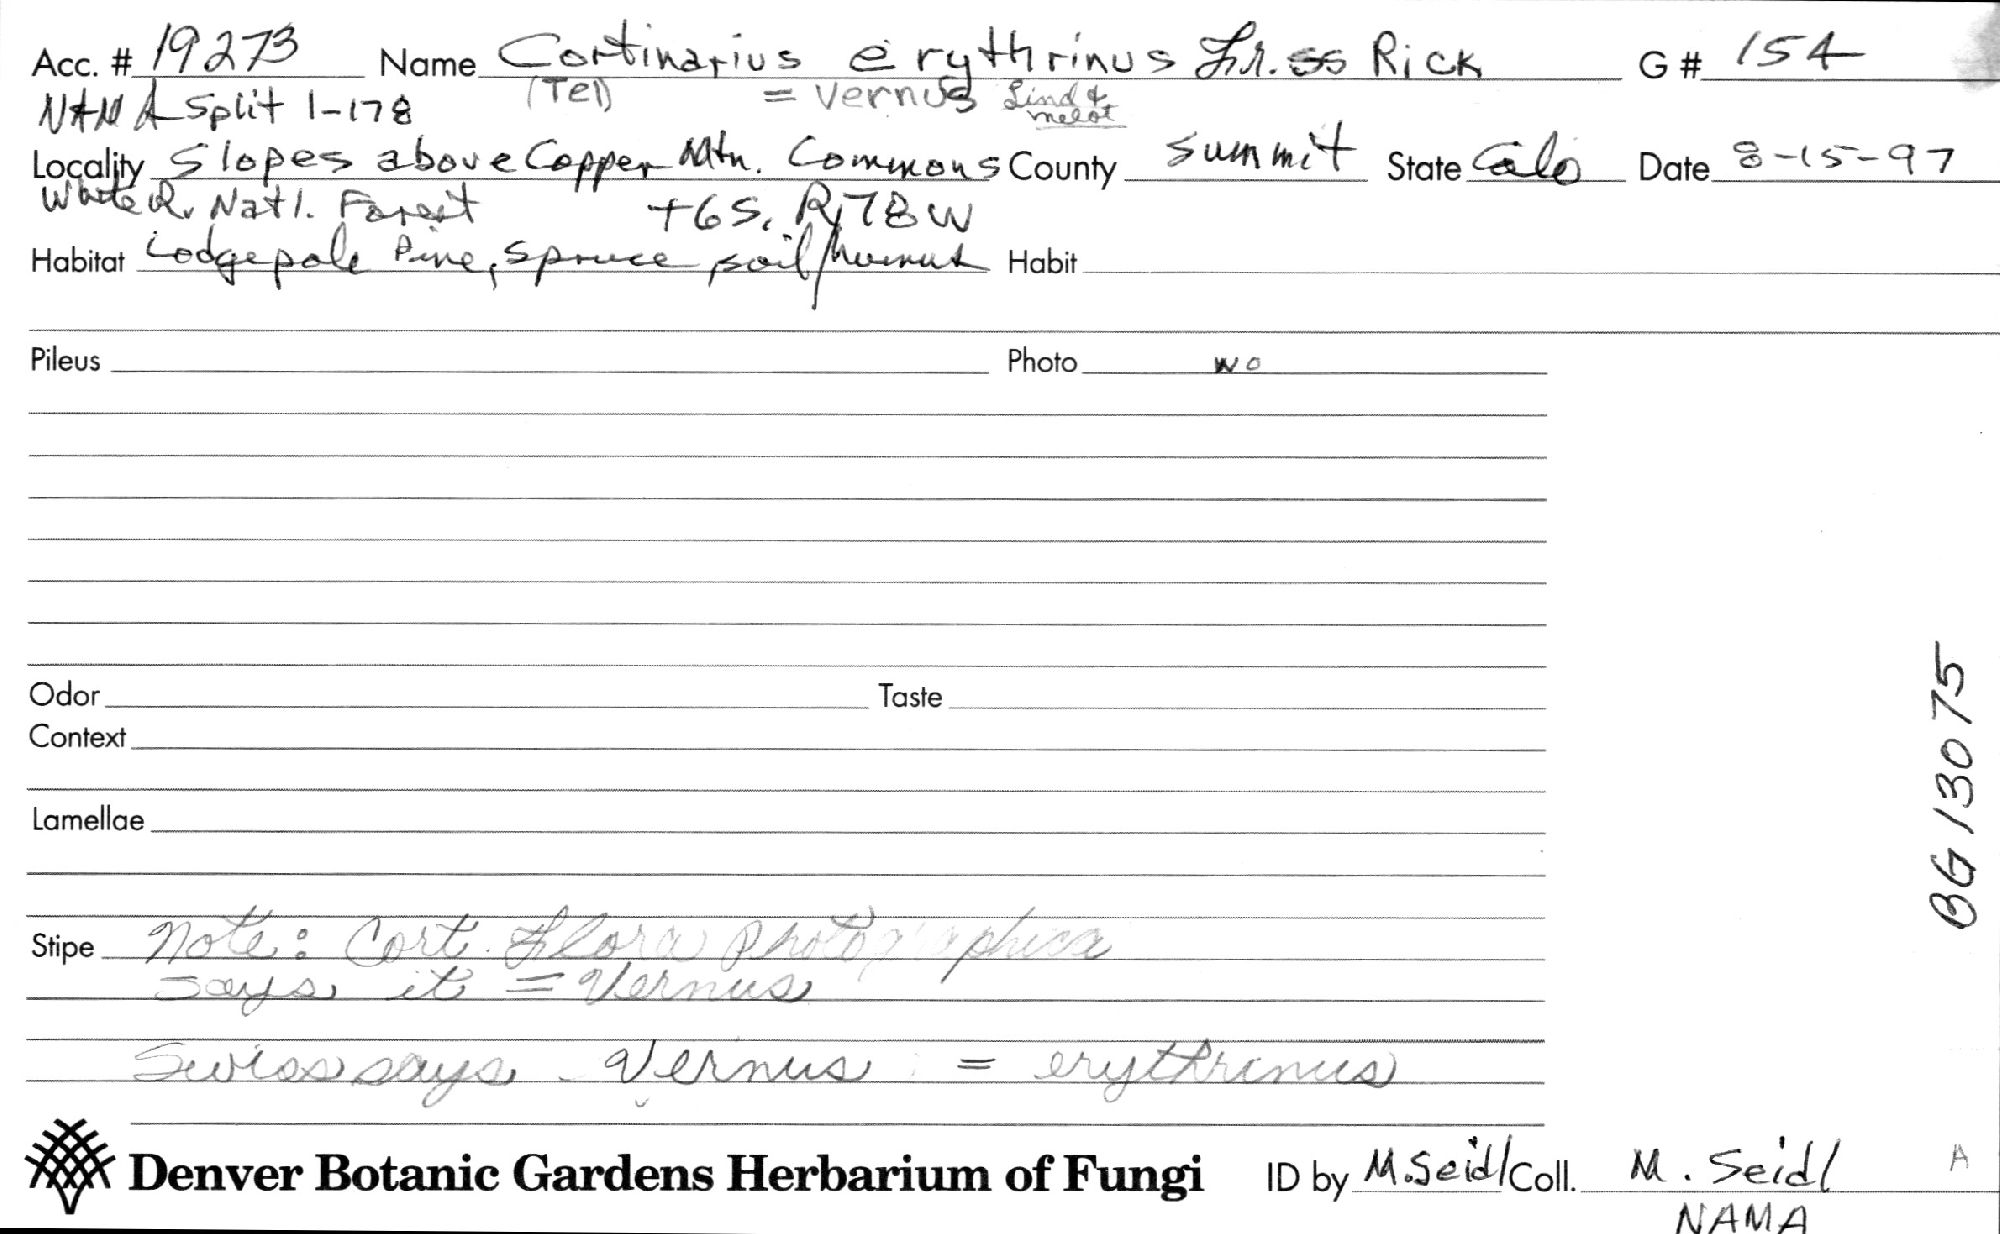 Acc. # 19273 Name Cortinarius erythrinus Fr. ss Rick G # 154
(Tel) = vernus Lind & Melot
NAMA Split 1-178
Locality Slopes above Copper Mtn. Commons County Summit State Colo Date 8-15-97
White R. Natl. Forest T6S, R78W
Habitat Lodgepole Pine, Spruce, soil/humus Habit
Pileus Photo no
Odor Taste
Context
Lamellae
Stipe Note: Cort. Flora Photographica
says it = Vernus
Swiss says Vernus = erythrinus
Denver Botanic Gardens Herbarium of Fungi ID by M. Seidl Coll. M. Seidl A
NAMA
BG 13075